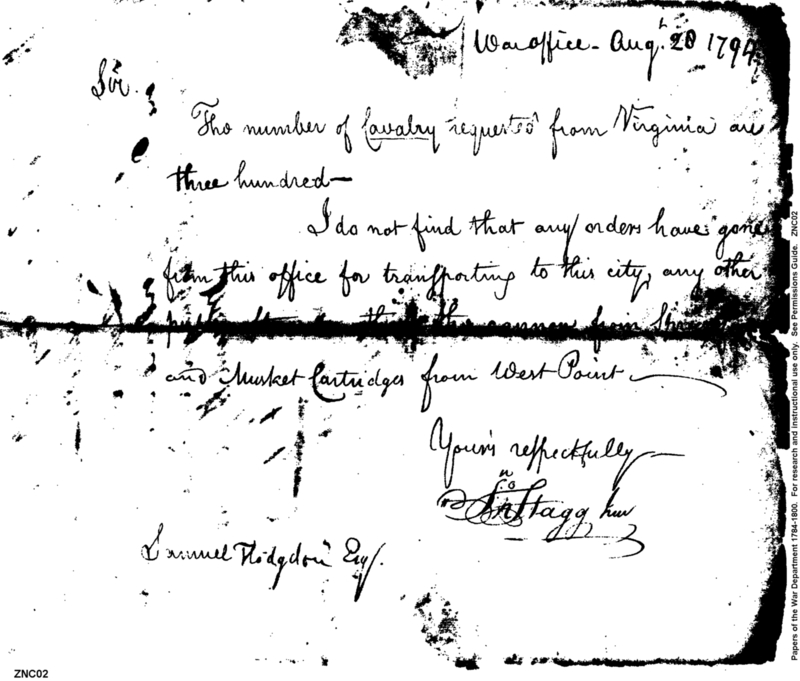 War office - Augt. 28 1794
Sir.
The number of Cavalry requested from Virginia are
three hundred—
I do not find that any orders have gone
from this office for transporting to this city, any other
the cannon from
and Musket Cartridges from West Point
Your's respectfully
Jno Stagg Junr
Samuel Hodgdon Esq.
Papers of the War Department 1784-1800. For research and instructional use only. See Permissions Guide. ZNC02
ZNC02